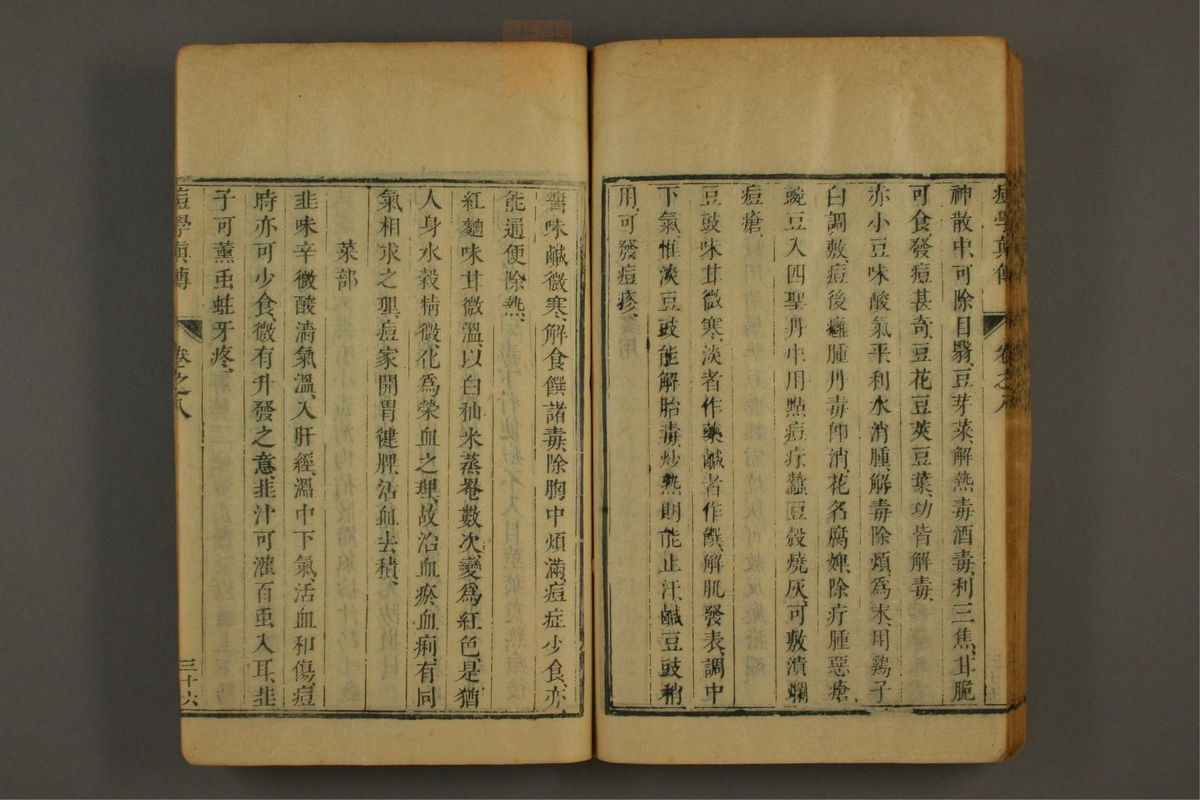 痘學真傳 卷之八
神散中可除目翳豆芽菜解熱毒酒毒利三焦甘脆
可食發痘甚奇豆花豆莢豆葉功皆解毒
赤小豆味酸氣平利水消腫解毒除煩為末用鷄子
白調敷痘後癰腫丹毒卽消花名腐婢除疔腫惡瘡
豌豆入四聖丹中用點痘疔蠶豆殼燒灰可敷潰爛
痘瘡
豆豉味甘微寒淡者作藥鹹者作饌解肌發表調中
下氣惟淡豆豉能解胎毒炒熱則能止汗鹹豆豉稍
用可發痘疹
醬味鹹微寒解食饌諸毒除胸中煩滿痘症少食亦
能通便除熱
紅麯味甘微溫以白秈米蒸罨數次變爲紅色是猶
人身水穀精微化爲榮血之理故治血瘀血痢有同
氣相求之理痘家開胃健脾活血去積
菜部
韭味辛微酸濇氣溫入肝經溫中下氣活血和傷痘
時亦可少食微有升發之意韭汁可灌百虫入耳韭
子可薰虫蛀牙疼
痘學眞傳 卷之八 三十六